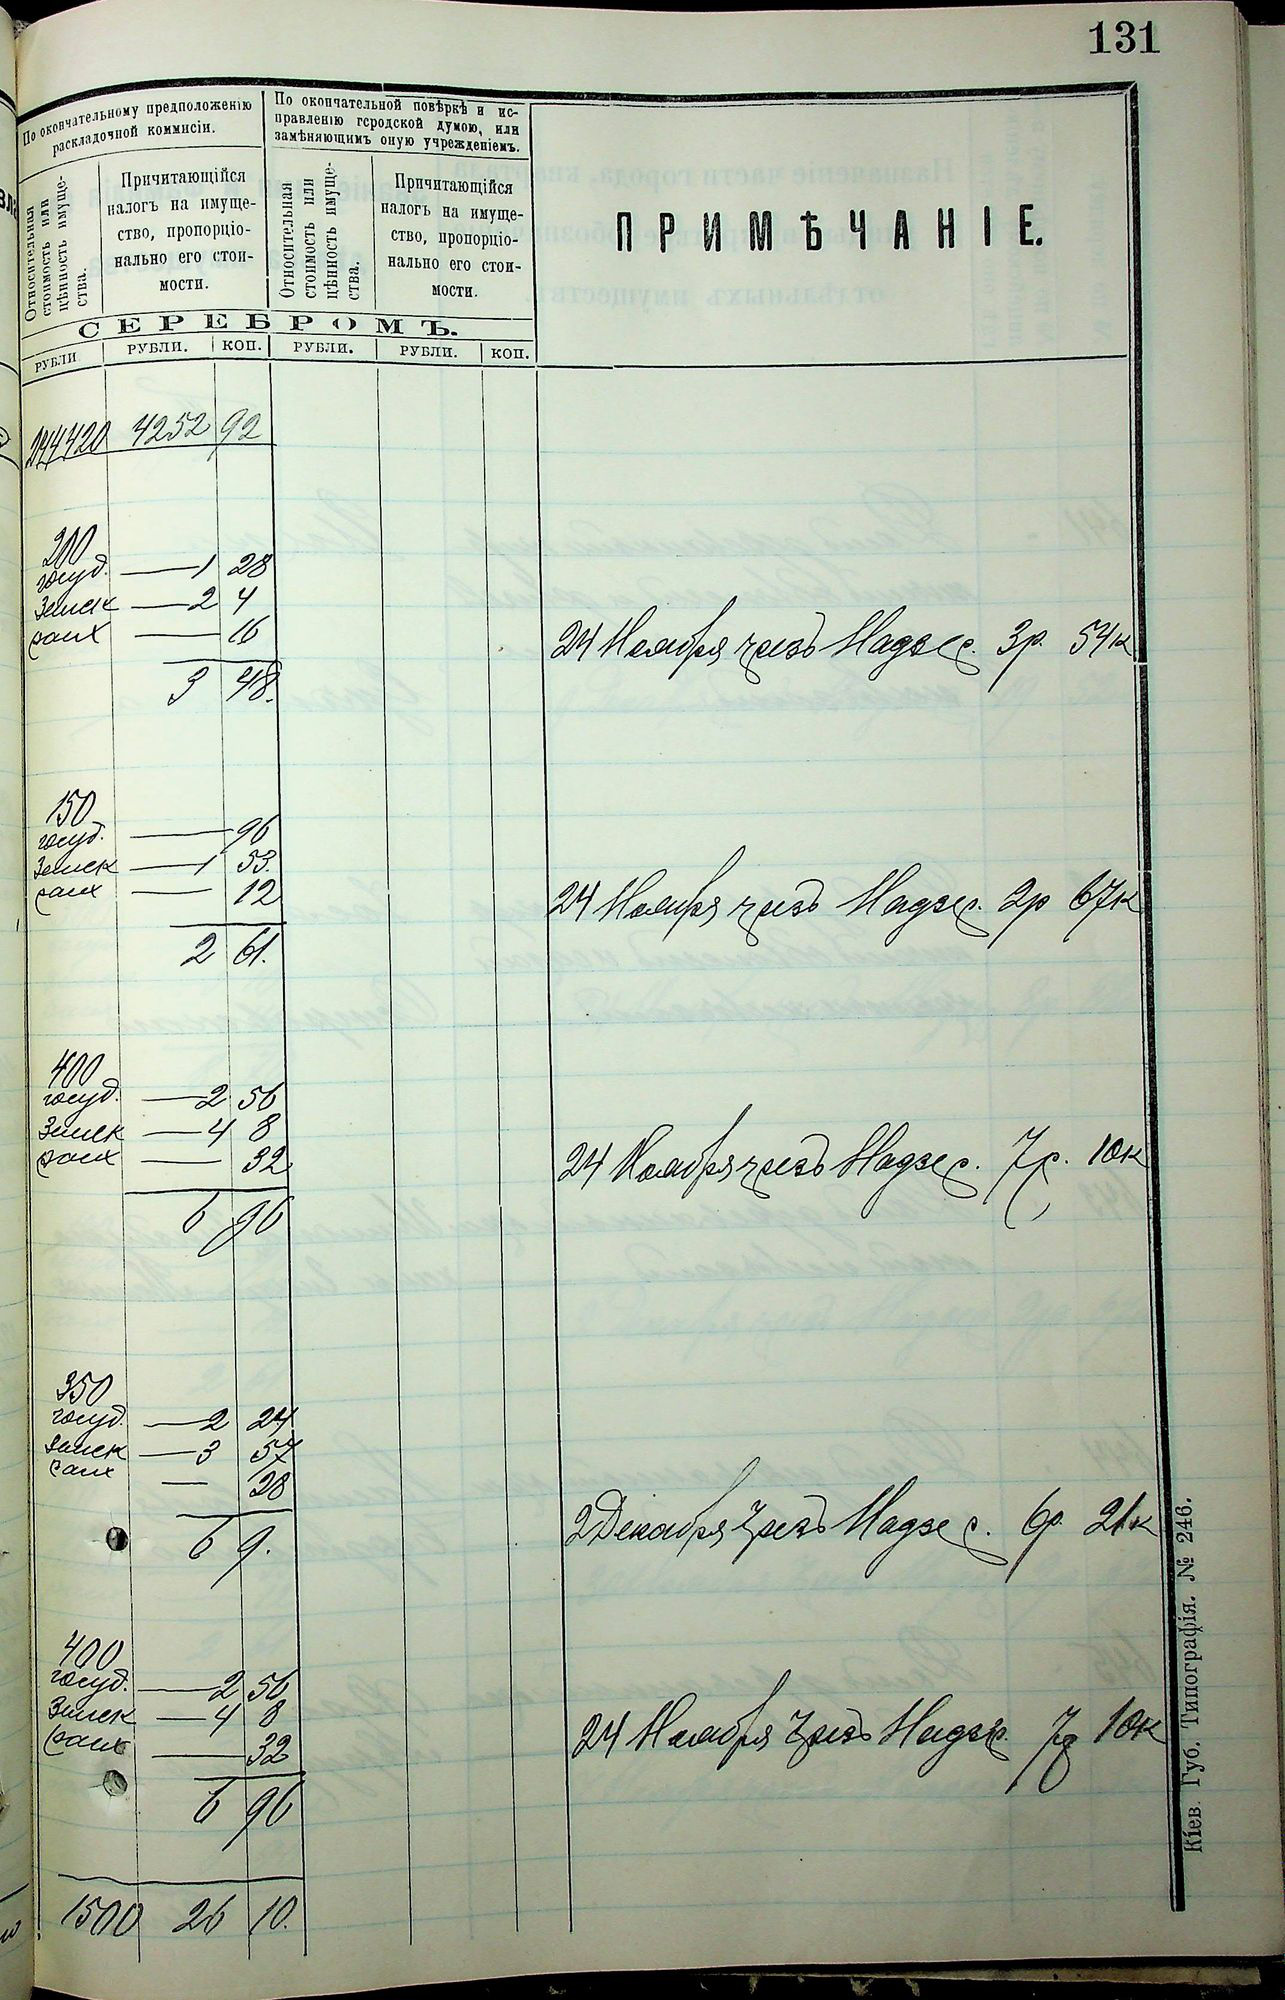 131
По окончательному предположенію
раскладочной коммисіи.
По окончательной повѣркѣ и ис-
правленію городской думою, или
замѣняющимъ оную учрежденіемъ.
Относительная
стоимость или
цѣнность имуще-
ства.
Причитающійся
налогъ на имуще-
ство, пропорціо-
нально его стои-
мости.
Относительная
стоимость или
цѣнность имуще-
ства.
Причитающійся
налогъ на имуще-
ство, пропорціо-
нально его стои-
мости.
ПРИМѢЧАНІЕ.
СЕРЕБРОМЪ.
РУБЛИ РУБЛИ. КОП. РУБЛИ. РУБЛИ. КОП.
244420 4252 92
200
госуд. — 1 28
Земск — 2 4
— 16
24 Ноября чрезъ Надзс. 3р. 54к
3 48.
150
госуд. — 96
Земск — 1 53.
— 12
24 Ноября чрезъ Надзс. 2р 67к
2 61.
400
госуд. — 2 56
Земск — 4 8
— 32
24 Ноября чрезъ Надзс. 7р. 10к
6 96
350
госуд. — 2 24
Земск — 3 57
— 28
2 Декабря чрезъ Надзс. 6р. 21к
6 9.
400
госуд. — 2 56
Земск — 4 8
— 32
24 Ноября чрезъ Надзс. 7р 10к
6 96
1500 26 10.
Кіев. Губ. Типографія. № 246.